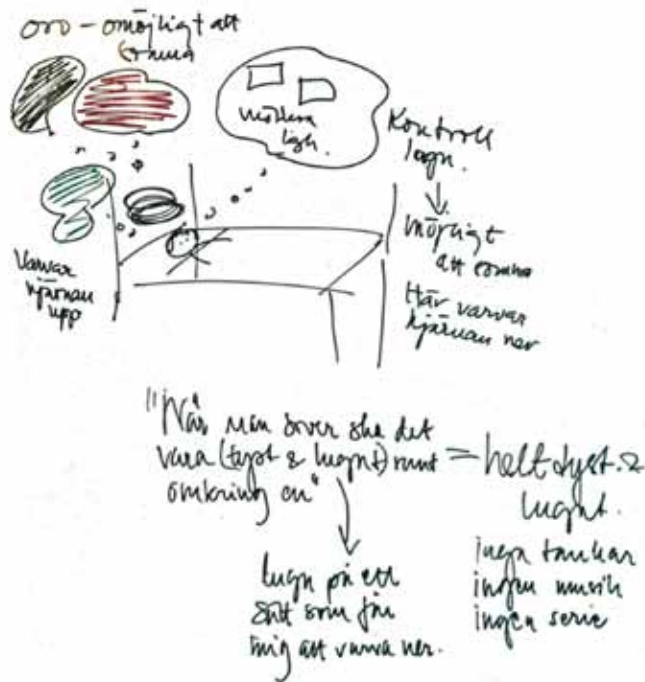 oro – omöjligt att
somna
Kontroll
lugn.
möjligt
att somna
Här varvar
hjärnan ner
Varvar
hjärnan
upp
"När man sover ska det
vara (tyst & lugnt) runt
omkring en"
= helt tyst &
lugnt.
lugn på ett
sätt som får
mig att varva ner.
inga tankar
ingen musik
ingen serie